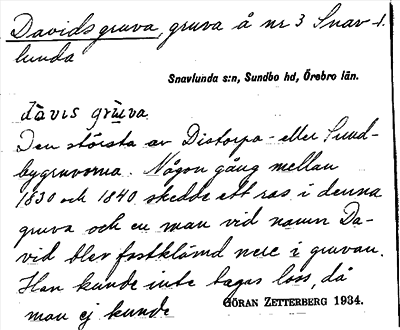 Davidsgruva, gruva å nr 3 Snav-
lunda
Snavlunda s:n, Sundbo hd, Örebro län.
dàvis grùva
Den största av Distorpa- eller Sund-
bygruvorna. Någon gång mellan
1830 och 1840 skedde ett ras i denna
gruva och en man vid namn Da-
vid blev fastklämd nere i gruvan.
Han kunde inte tagas loss, då
man ej kunde
GÖRAN ZETTERBERG 1934.